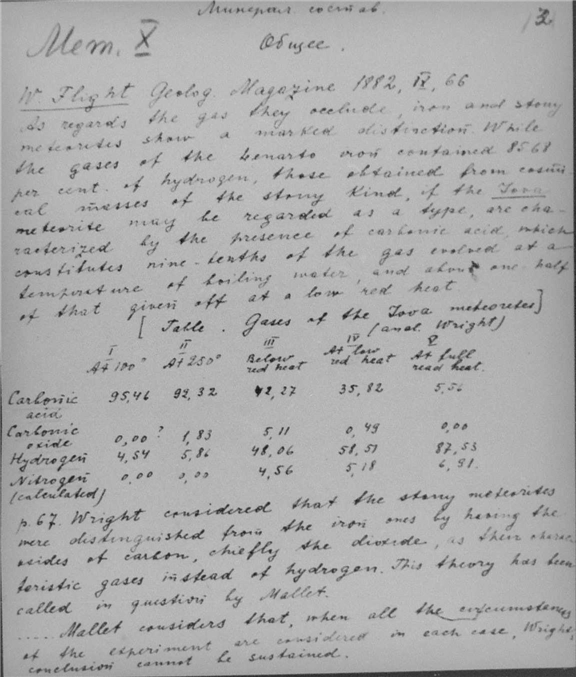 Минерал. состав.
3
Мет. X
Общее.
W. Flight Geolog. Magazine 1882, IX, 66
As regards the gas they occlude, iron and stony
meteorites show a marked distinction. While
the gases of the Lenarto iron contained 85.68
per cent. of hydrogen, those obtained from cosmi-
cal masses of the stony kind, if the Iova
meteorite may be regarded as a type, are cha-
racterized by the presence of carbonic acid, which
constitutes nine-tenths of the gas evolved at a
temperature of boiling water, and about one half
of that given off at a low red heat.
[Table. Gases of the Iova meteorites]
(anal. Wright)
I II III IV V
At 100° At 250° Below red heat At low red heat At full read heat.
Carbonic acid 95,46 92,32 42,27 35,82 5,56
Carbonic oxide 0,00? 1,83 5,11 0,49 0,00
Hydrogen 4,54 5,86 48,06 58,51 87,53
Nitrogen (calculated) 0,00 0,00 4,56 5,18 6,91
p. 67. Wright considered that the stony meteorites
were distinguished from the iron ones by having the
oxides of carbon, chiefly the dioxide, as their charac-
teristic gases instead of hydrogen. This theory has been
called in question by Mallet.
..... Mallet considers that, when all the circumstances
of the experiment are considered in each case, Wright,
conclusion cannot be sustained.